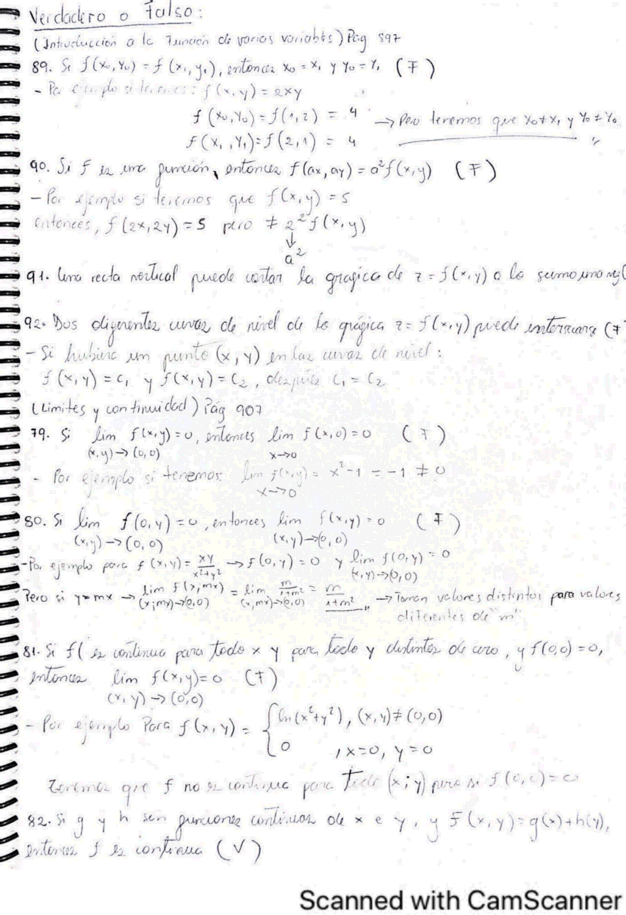 Verdadero o Falso:
(Introducción a la Función de varias variables) Pág 897
89. Si f(x₀,y₀) = f(x₁,y₁), entonces x₀ = x₁ y y₀ = y₁ (F)
- Por ejemplo si tenemos: f(x,y) = 2xy
f(x₀,y₀) = f(1,2) = 4 → Pero tenemos que x₀ ≠ x₁ y y₀ ≠ y₁
f(x₁,y₁) = f(2,1) = 4
90. Si f es una función, entonces f(ax,ay) = a²f(x,y) (F)
- Por ejemplo si tenemos que f(x,y) = 5
entonces, f(2x,2y) = 5 pero ≠ 2²f(x,y)
↓
a²
91. Una recta vertical puede cortar la grafica de z = f(x,y) a lo sumo una vez (
92. Dos diferentes curvas de nivel de la gráfica z = f(x,y) puede intersecarse (F
- Si hubiera un punto (x,y) en las curvas de nivel:
f(x,y) = c₁ y f(x,y) = c₂, después c₁ = c₂
(Limites y continuidad) Pág 907
79. Si lim f(x,y) = 0, entonces lim f(x,0) = 0 (F)
(x,y)→(0,0) x→0
- Por ejemplo si tenemos: lim f(x,y) = x²-1 = -1 ≠ 0
x→0
80. Si lim f(0,y) = 0, entonces lim f(x,y) = 0 (F)
(x,y)→(0,0) (x,y)→(0,0)
- Por ejemplo para f(x,y) = xy/(x²+y²) → f(0,y) = 0 y lim f(0,y) = 0
(x,y)→(0,0)
Pero si y=mx → lim f(x,mx) = lim m/(1+m²) = m/(1+m²) → Toman valores distintos para valores
(x,mx)→(0,0) (x,mx)→(0,0) diferentes de "m"
81. Si f es continua para todo x y para todo y distintos de cero, y f(0,0) = 0,
entonces lim f(x,y) = 0 (F)
(x,y)→(0,0)
- Por ejemplo Para f(x,y) = { ln(x²+y²), (x,y) ≠ (0,0)
0 , x=0, y=0
Tenemos que f no es continua para todo (x;y) pero si f(0,0) = 0
82. Si g y h son funciones continuas de x e y, y f(x,y) = g(x)+h(y),
entonces f es continua (V)
Scanned with CamScanner